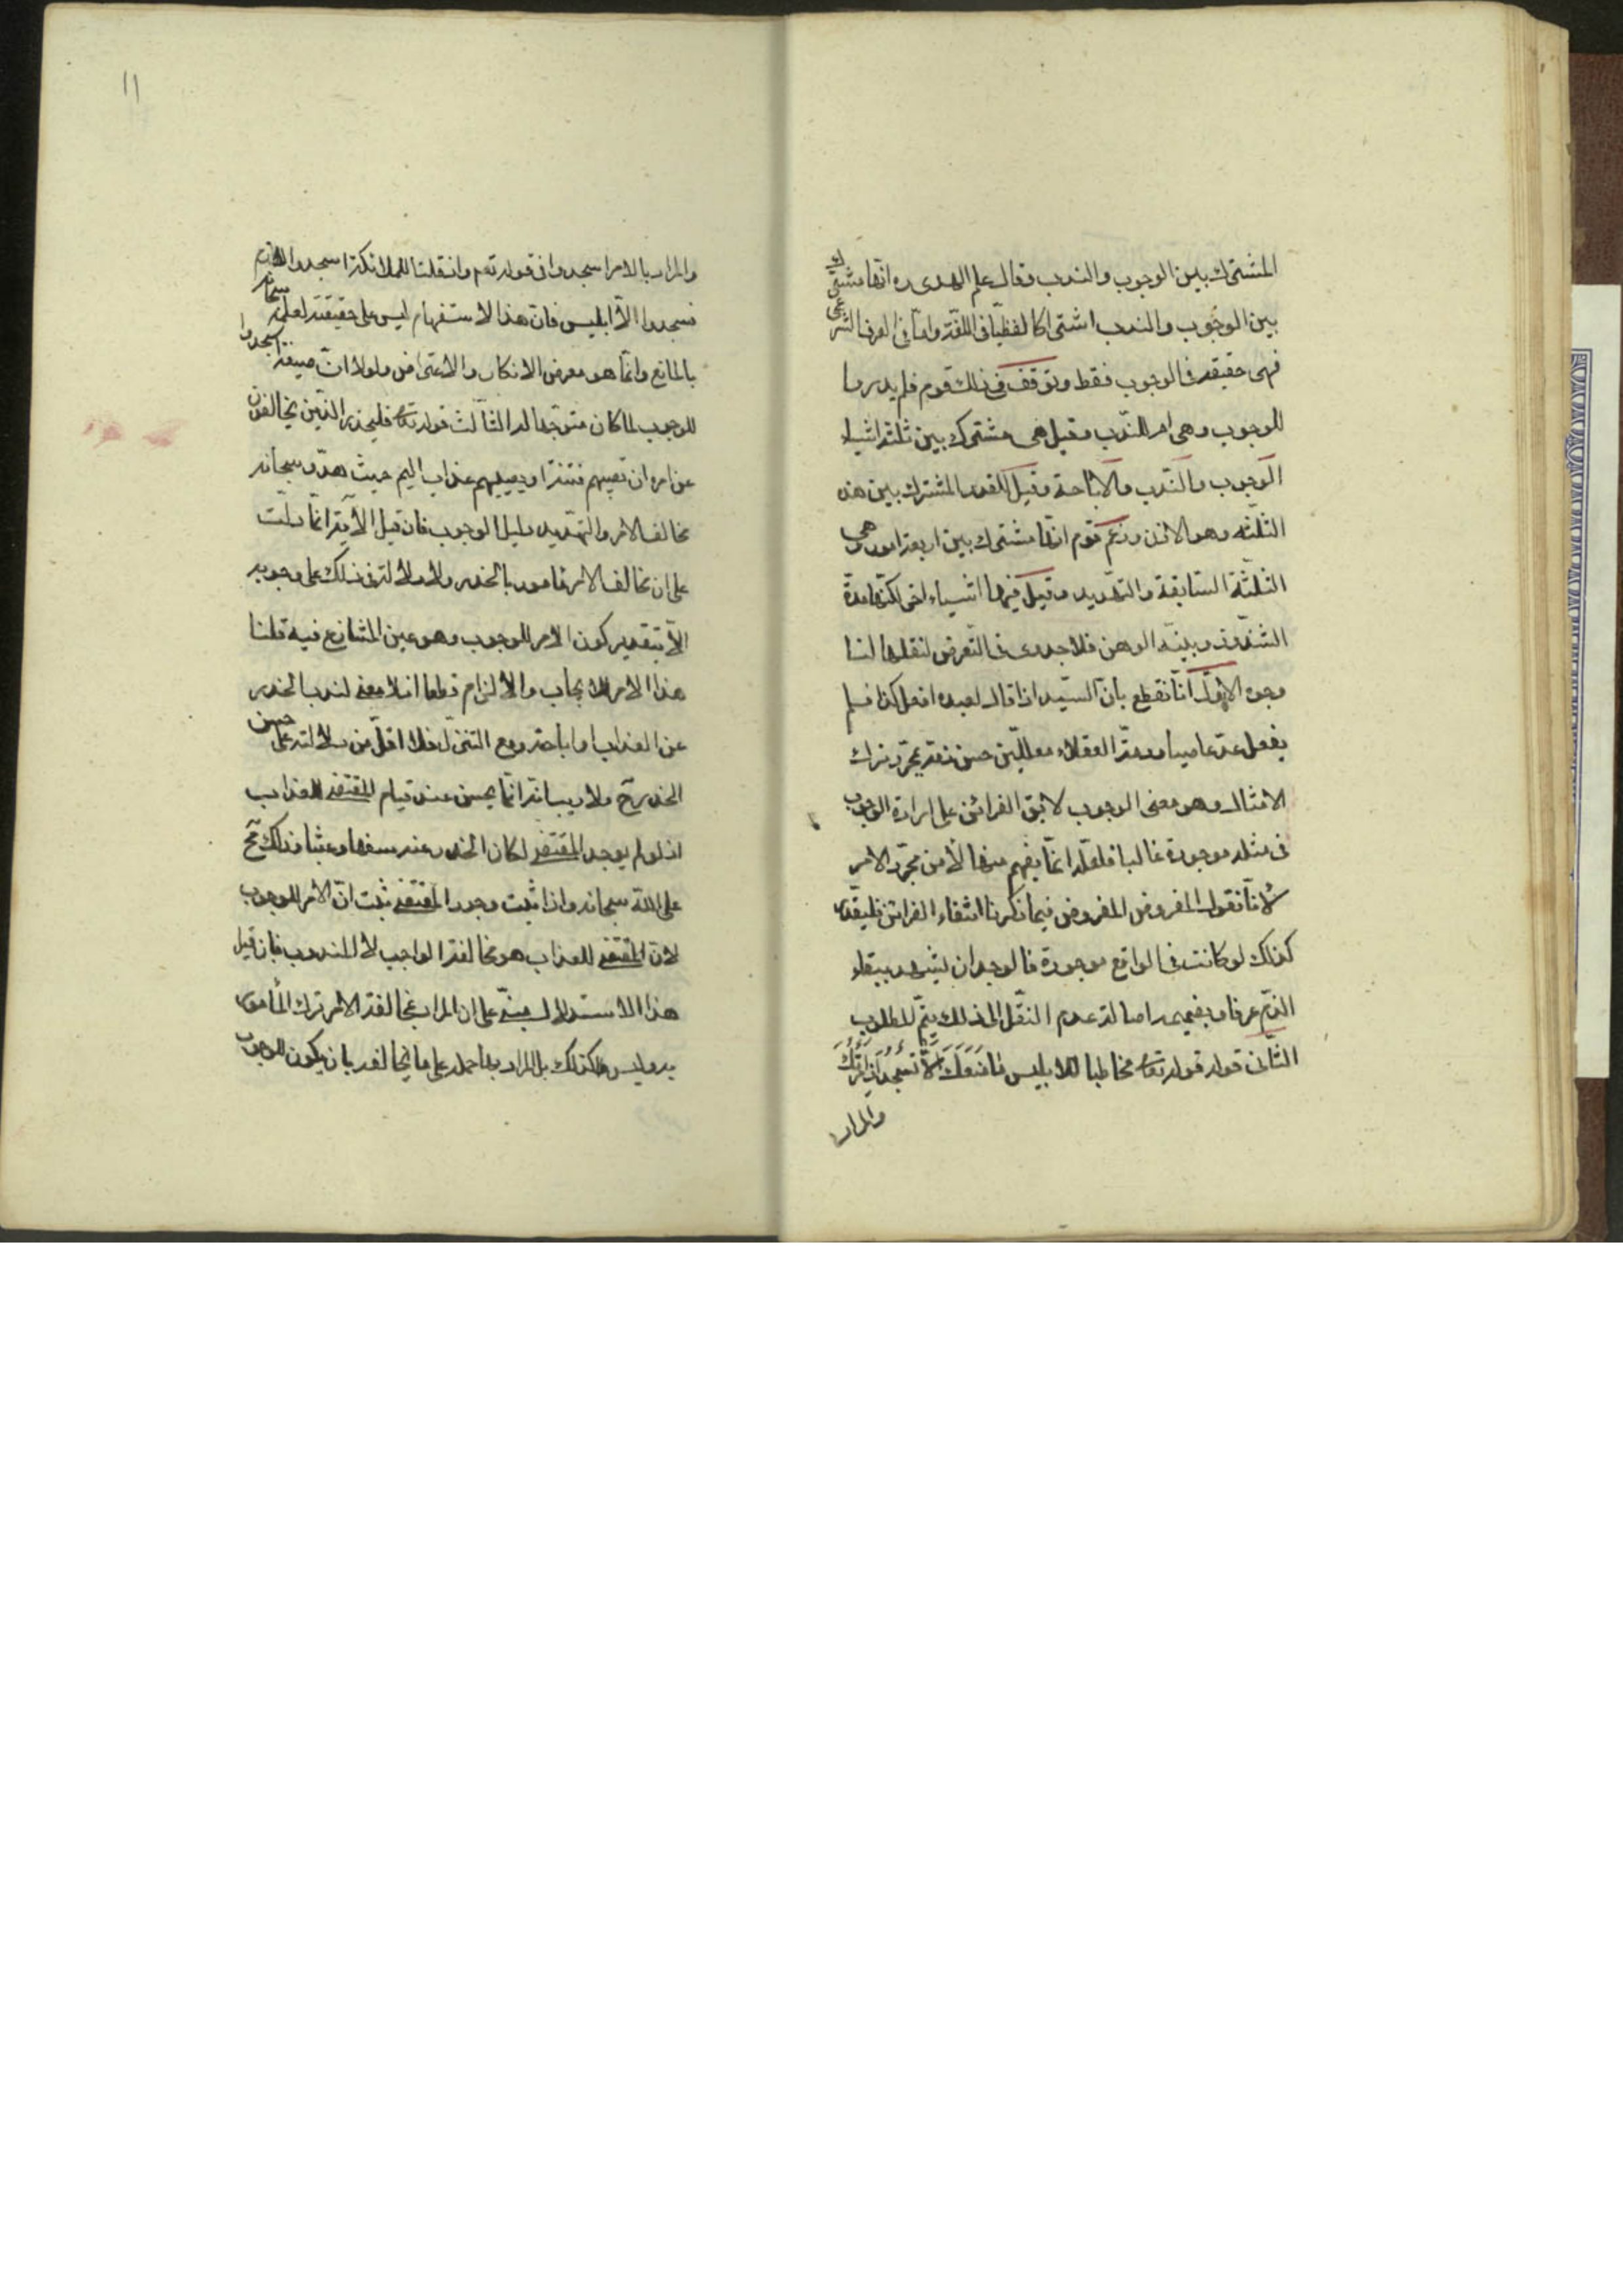 المشترك بين الوجوب والندب وقال علم الهدى ره انّها مشترك
بين الوجوب والندب اشتراكا لفظيّا فى اللغة وامّا فى العرف الشرعى
فهى حقيقة فى الوجوب فقط وتوقف فى ذلك قوم فلم يدروا
للوجوب وهى ام للنّدب وقيل هى مشترك بين ثلثة اشياء
الوجوب والنّدب والاباحة وقيل للقدر المشترك بين هذه
الثلثة وهو الاذن وزعم قوم انّها مشترك بين اربعة امور هى
الثلثة السّابقة والتهديد وقيل فيها اشياء اخر لكنّها
الشذوذ وبيّنة الوهن فلا جدوى فى التّعرض لنقلها لنا
وجوه الاوّل انّا نقطع بانّ السيّد اذا قال لعبده افعل كذا فلم
يفعل عدّ عاصيا وذمّه العقلاء معلّلين حسن ذمّه بمجرّد ترك
الامتثال وهو معنى الوجوب لا بق القرائن على ارادة الوجوب
فى مثله موجودة غالبا فلعلّه انّما يفهم منها لا من مجرّد الامر
لانّا نقول المفروض فيما ذكرنا انتفاء القرائن فليقدّر
كذلك لو كانت فى الواقع موجودة فالوجدان يشهد ببقاء
الذمّ عرفا وبضميمة اصالة عدم النقل الى ذلك يتمّ المطلوب
الثّانى قوله قوله تعالى مخاطبا للابليس مَا مَنَعَكَ اَلَّا تَسْجُدَ اِذْ اَمَرْتُكَ
والمراد
١١
والمراد بالامر اسجدوا فى قوله تعم واذ قلنا للملائكة اسجدوا لادم
فسجدوا الّا ابليس فان هذا الاستفهام ليس على حقيقته لعلمه سبحانه
بالمانع وانّما هو معرض الانكار والاعتراض ولولا انّ صيغة اسجدوا
للوجوب لما كان متوجّها الثّالث قوله تعالى فليحذر الّذين يخالفون
عن امره ان تصيبهم فتنة او يصيبهم عذاب اليم حيث هدّد سبحانه
مخالف الامر والتهديد دليل الوجوب فان قيل الآية انّما دلّت
على ان مخالف الامر مامور بالحذر ولا دلالة فى ذلك على وجوبه
الّا بتقدير كون الامر للوجوب وهو عين المتنازع فيه قلنا
هذا الامر للايجاب والالزام قطعا اذ لا معنى لندب الحذر
عن العذاب واباحته ومع التنزّل فلا اقلّ من دلالته على حسن
الحذر ح ولا ريب انّه انّما يحسن عند قيام المقتضى للعذاب
اذ لو لم يوجد المقتضى لكان الحذر عنه سفها وعبثا وذلك مح
على اللّه سبحانه واذا ثبت وجود المقتضى ثبت انّ الامر للوجوب
لانّ المقتضى للعذاب هو مخالفة الواجب لا المندوب فان قيل
هذا الاستدلال مبنىّ على ان المراد بمخالفة الامر ترك المأمور
به وليس كذلك بل المراد بها حمله على ما يخالفه بان يكون للوجوب